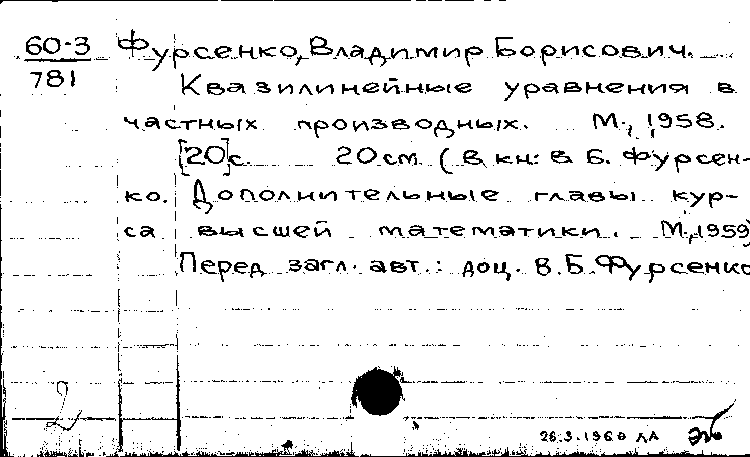 60-3 Фурсенко, Владимир Борисович.
781
Квазилинейные уравнения в
частных производных. М., 1958.
[20]с. 20см. (В кн: В. Б. Фурсен-
ко. Дополнительные главы кур-
са высшей математики. М., 1959)
Перед загл. авт.: доц. В. Б. Фурсенко
2
26.3.1960 ЛА